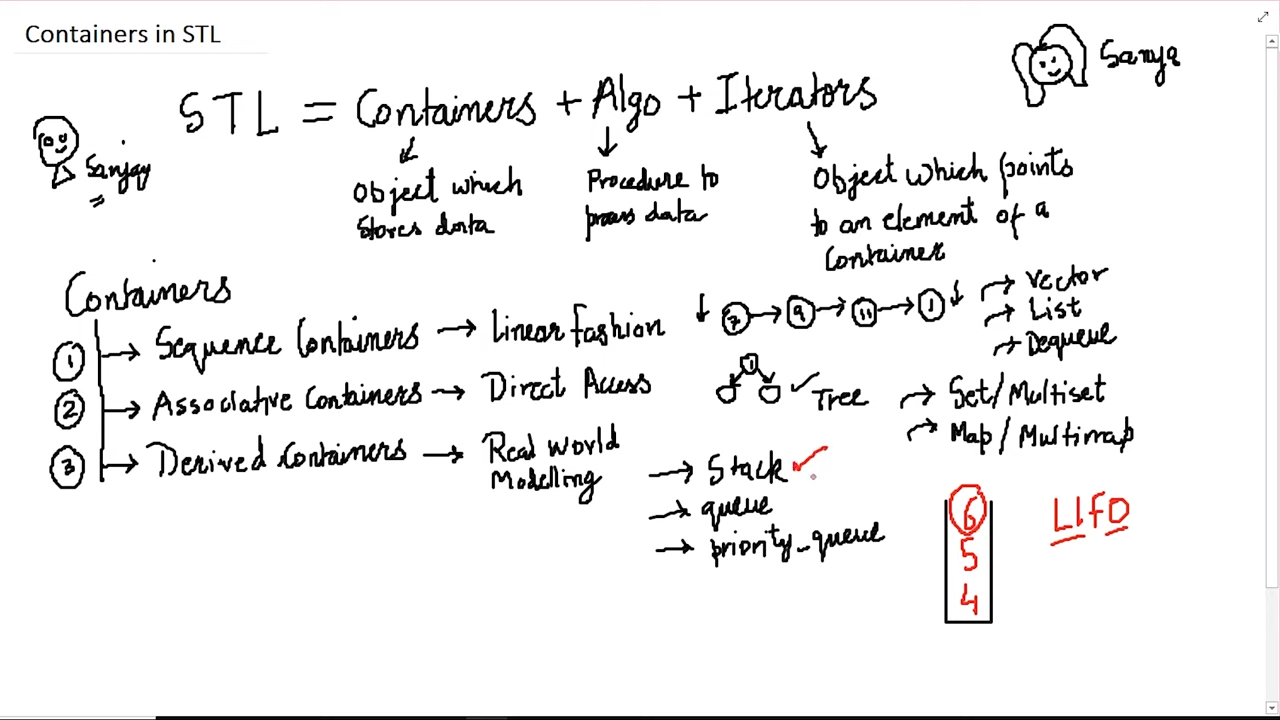 Containers in STL
Sanya
STL = Containers + Algo + Iterators
Sanjay
Object which
stores data
Procedure to
process data
Object which points
to an element of a
Container
Containers
1 Sequence Containers → Linear Fashion
7 → 9 → 11 → 1
Vector
List
Dequeue
2 Associative Containers → Direct Access
1
Tree
Set/Multiset
Map/Multimap
3 Derived Containers → Real World
Modelling
→ Stack
→ queue
→ priority-queue
6
5
4
LIFO